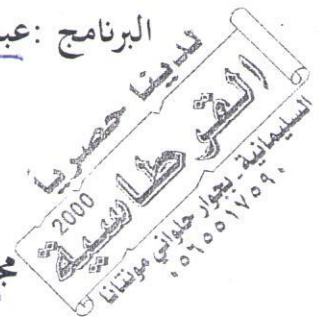 البرنامج : عبـ
لدينا حصريا
القرطاسية
2000
السليمانية - بجوار حلواني مونتانا
٠٥٦٥٥١٧٥٩٠